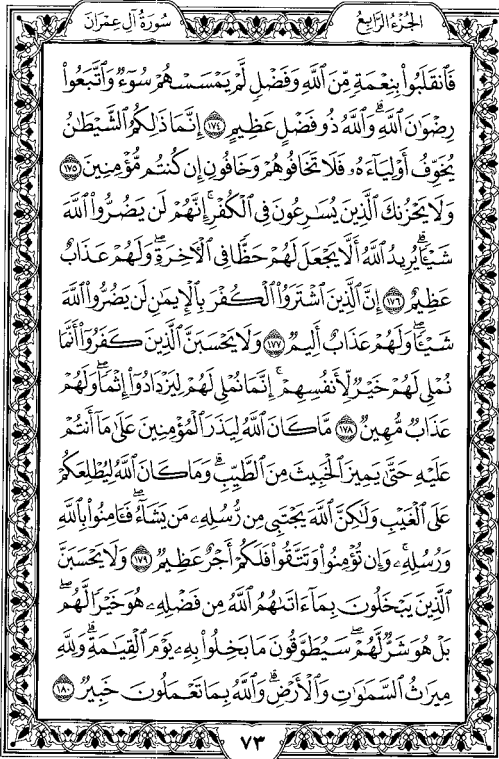 الجزء الرابع
سورة آل عمران
فَٱنقَلَبُوا۟ بِنِعْمَةٍ مِّنَ ٱللَّهِ وَفَضْلٍ لَّمْ يَمْسَسْهُمْ سُوٓءٌ وَٱتَّبَعُوا۟
رِضْوَٰنَ ٱللَّهِ ۗ وَٱللَّهُ ذُو فَضْلٍ عَظِيمٍ ١٧٤ إِنَّمَا ذَٰلِكُمُ ٱلشَّيْطَٰنُ
يُخَوِّفُ أَوْلِيَآءَهُۥ فَلَا تَخَافُوهُمْ وَخَافُونِ إِن كُنتُم مُّؤْمِنِينَ ١٧٥
وَلَا يَحْزُنكَ ٱلَّذِينَ يُسَٰرِعُونَ فِى ٱلْكُفْرِ ۚ إِنَّهُمْ لَن يَضُرُّوا۟ ٱللَّهَ
شَيْـًٔا ۗ يُرِيدُ ٱللَّهُ أَلَّا يَجْعَلَ لَهُمْ حَظًّا فِى ٱلْءَاخِرَةِ ۖ وَلَهُمْ عَذَابٌ
عَظِيمٌ ١٧٦ إِنَّ ٱلَّذِينَ ٱشْتَرَوُا۟ ٱلْكُفْرَ بِٱلْإِيمَٰنِ لَن يَضُرُّوا۟ ٱللَّهَ
شَيْـًٔا ۖ وَلَهُمْ عَذَابٌ أَلِيمٌ ١٧٧ وَلَا يَحْسَبَنَّ ٱلَّذِينَ كَفَرُوٓا۟ أَنَّمَا
نُمْلِى لَهُمْ خَيْرٌ لِّأَنفُسِهِمْ ۚ إِنَّمَا نُمْلِى لَهُمْ لِيَزْدَادُوٓا۟ إِثْمًا ۚ وَلَهُمْ
عَذَابٌ مُّهِينٌ ١٧٨ مَّا كَانَ ٱللَّهُ لِيَذَرَ ٱلْمُؤْمِنِينَ عَلَىٰ مَآ أَنتُمْ
عَلَيْهِ حَتَّىٰ يَمِيزَ ٱلْخَبِيثَ مِنَ ٱلطَّيِّبِ ۗ وَمَا كَانَ ٱللَّهُ لِيُطْلِعَكُمْ
عَلَى ٱلْغَيْبِ وَلَٰكِنَّ ٱللَّهَ يَجْتَبِى مِن رُّسُلِهِۦ مَن يَشَآءُ ۖ فَـَٔامِنُوا۟ بِٱللَّهِ
وَرُسُلِهِۦ ۚ وَإِن تُؤْمِنُوا۟ وَتَتَّقُوا۟ فَلَكُمْ أَجْرٌ عَظِيمٌ ١٧٩ وَلَا يَحْسَبَنَّ
ٱلَّذِينَ يَبْخَلُونَ بِمَآ ءَاتَىٰهُمُ ٱللَّهُ مِن فَضْلِهِۦ هُوَ خَيْرًا لَّهُم ۖ
بَلْ هُوَ شَرٌّ لَّهُمْ ۖ سَيُطَوَّقُونَ مَا بَخِلُوا۟ بِهِۦ يَوْمَ ٱلْقِيَٰمَةِ ۗ وَلِلَّهِ
مِيرَٰثُ ٱلسَّمَٰوَٰتِ وَٱلْأَرْضِ ۗ وَٱللَّهُ بِمَا تَعْمَلُونَ خَبِيرٌ ١٨٠
٧٣